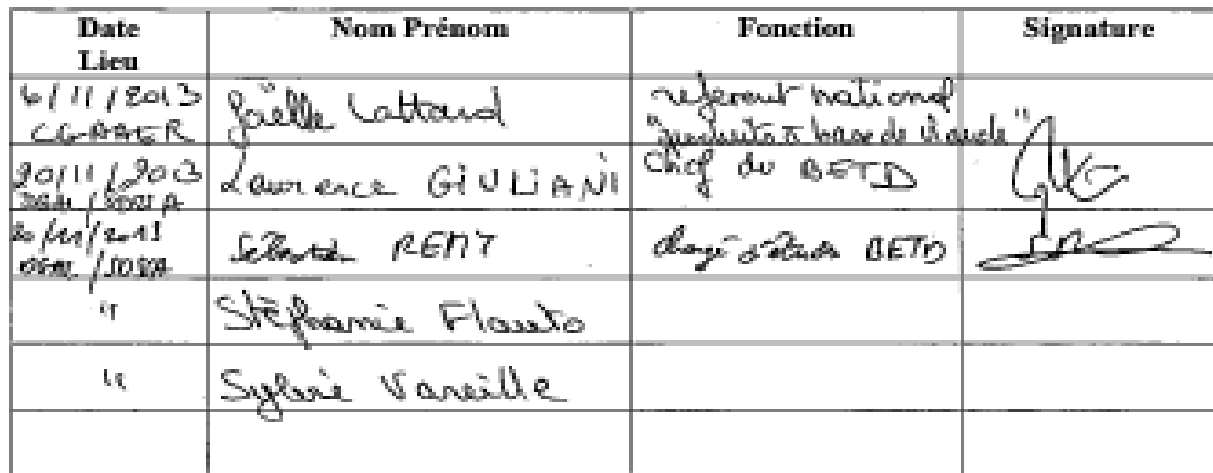 Date Lieu Nom Prénom Fonction Signature
6/11/2013 CGAAER Joëlle Lattaud referent national "produits à base de viande"
20/11/2013 Laurence GIULIANI Chef du BETD
20/11/2013 Sébastien REMY chargé d'études BETD
" Stéphanie Flauto
" Sylvie Vareille